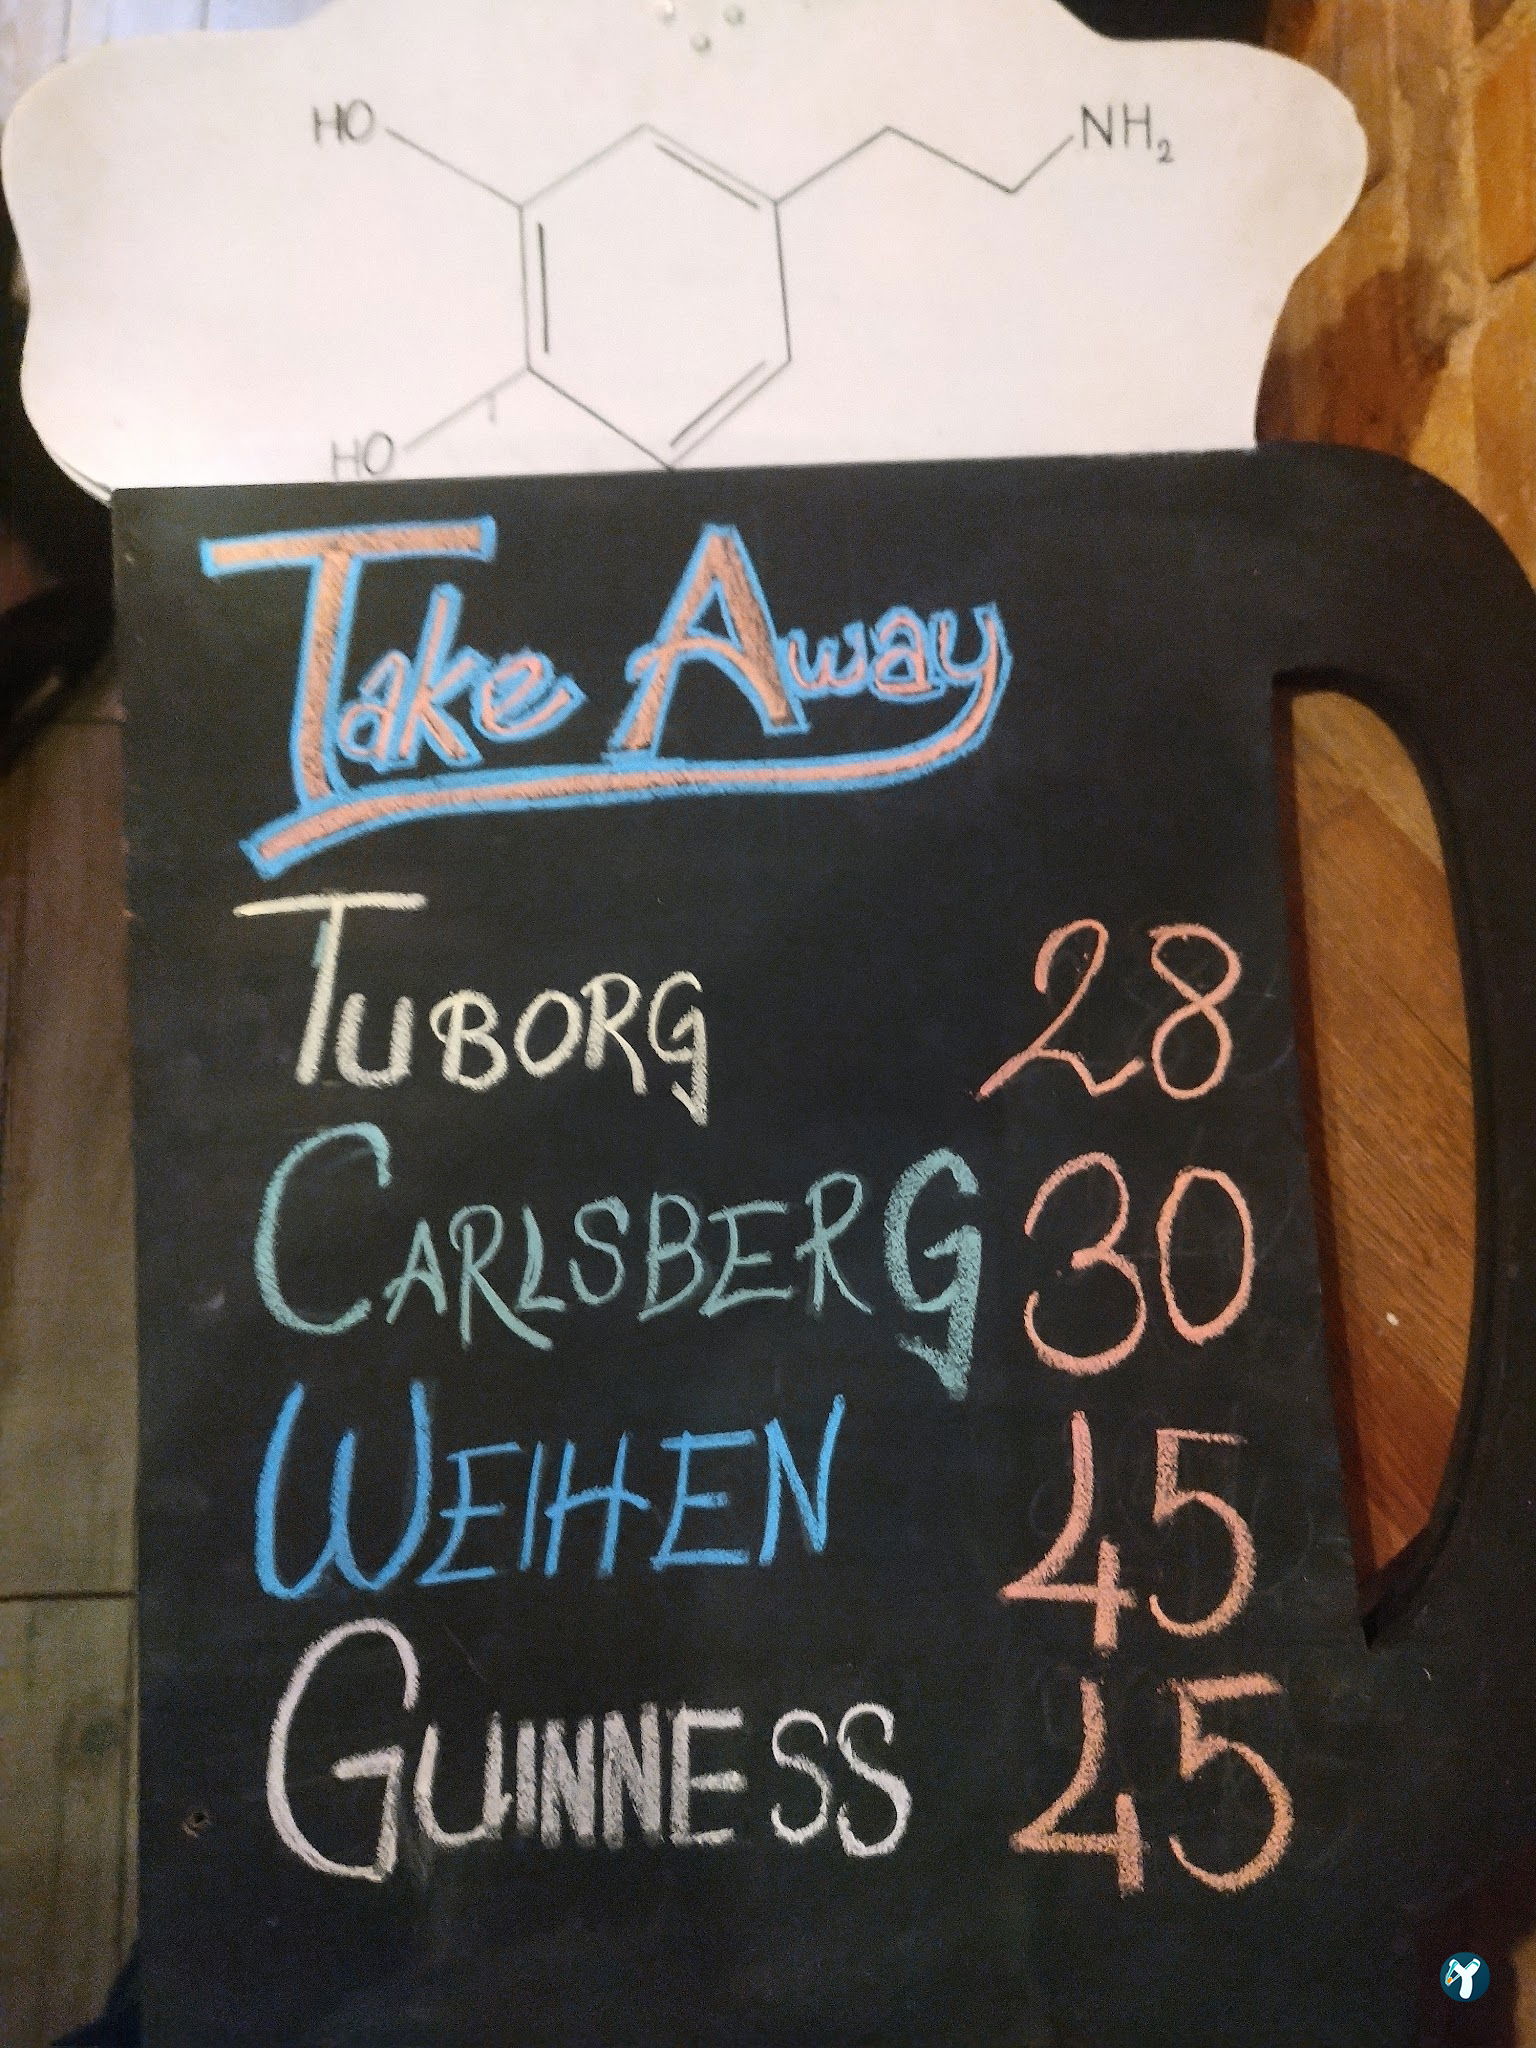 HO
NH₂
HO
Take Away
TUBORG 28
CARLSBERG 30
WEIHEN 45
GUINNESS 45